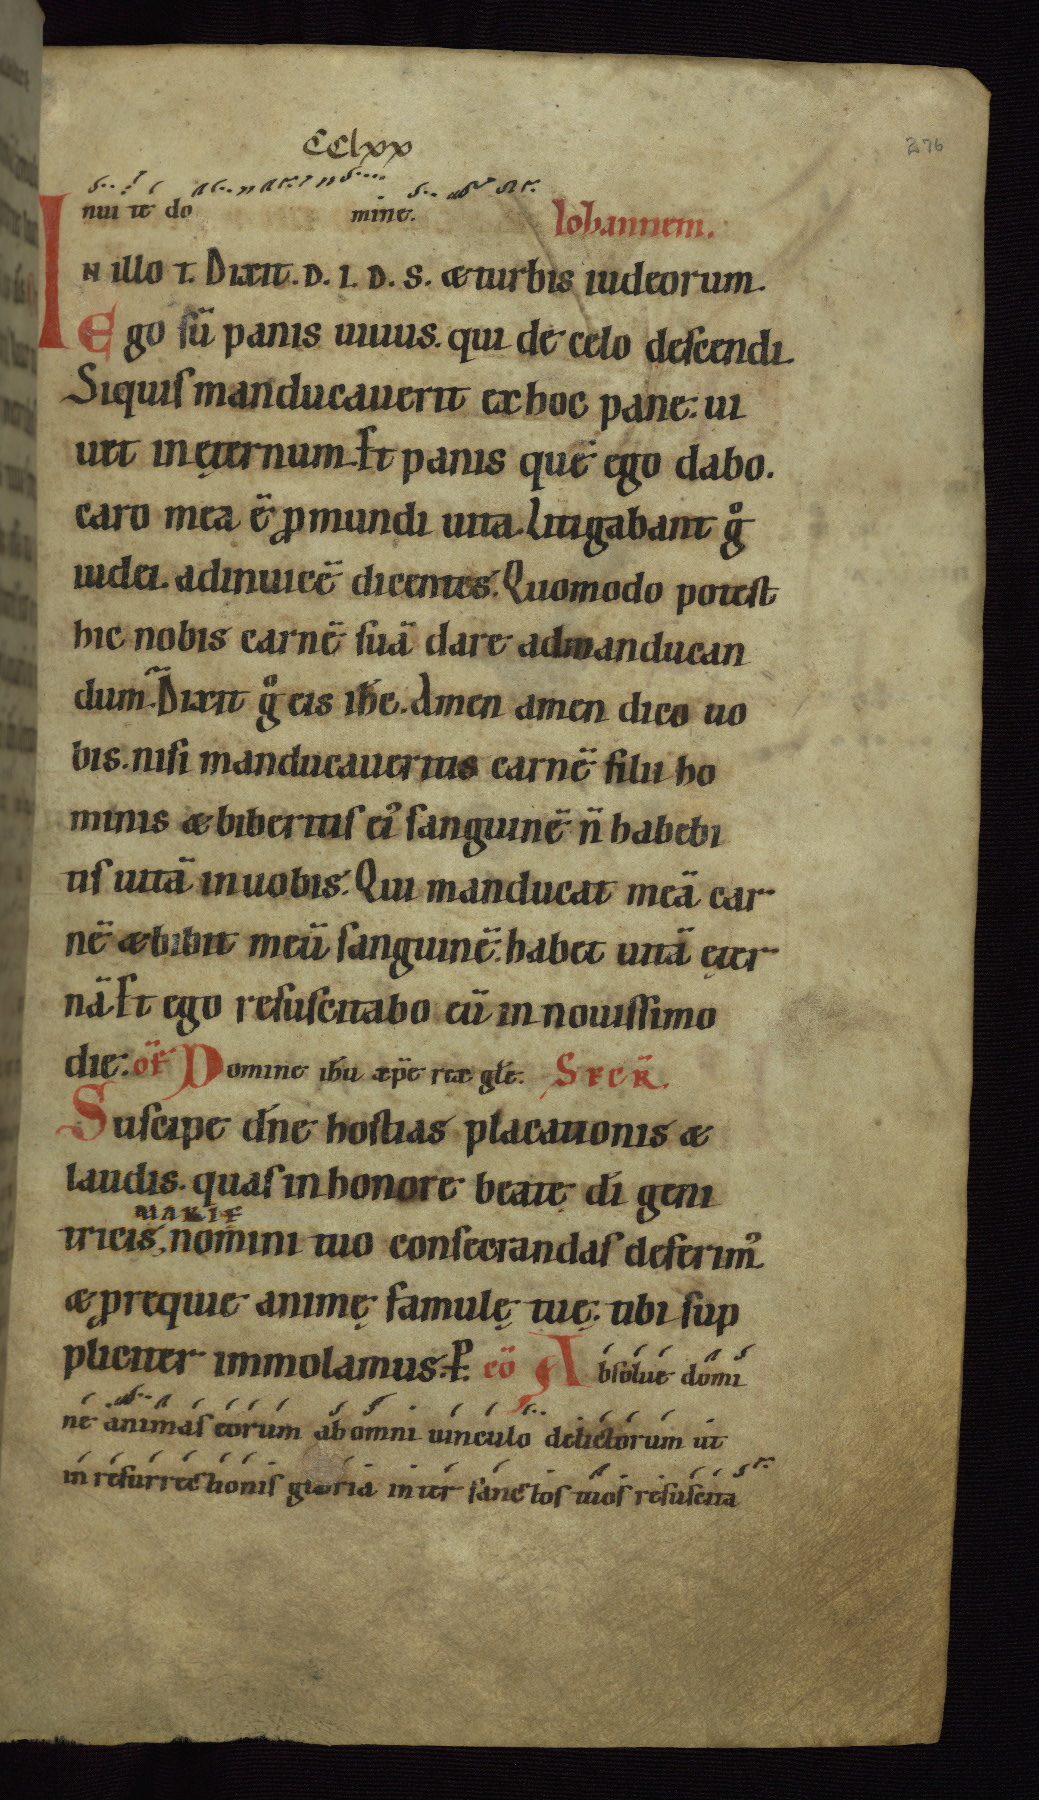 CClxx
276
nui te do mine. Iohannem.
IN illo t. Dixit. D. I. D. S. & turbis iudeorum.
Ego sū panis uiuus. qui de celo descendi.
Siquis manducauerit ex hoc pane: ui
uet in ęternum. Et panis quē ego dabo.
caro mea ē pmundi uita. Litigabant g̊
iudei. adinuicē dicentes. Quomodo potest
hic nobis carnē suā dare admanducan
dum. Dixit g̊ eis ihc. Amen amen dico uo
bis. nisi manducaueritis carnē filii ho
minis & biberitis ei' sanguinē n̄ habebi
tis uitā inuobis. Qui manducat meā car
nē & bibit meū sanguinē. habet uitā ęter
nā. Et ego resuscitabo eū in nouissimo
die: of Domine ihu xpe rex gle. SECR̄.
Suscipe dne hostias placationis &
laudis. quas in honore beatę di geni
MARIE
tricis, nomini tuo consecrandas deferim'
& prequie animę famulę tuę. tibi sup
pliciter immolamus. P. cō Absolue domi
ne animas eorum ab omni uinculo delictorum ut
in resurrectionis gloria inter sanctos tuos resuscita